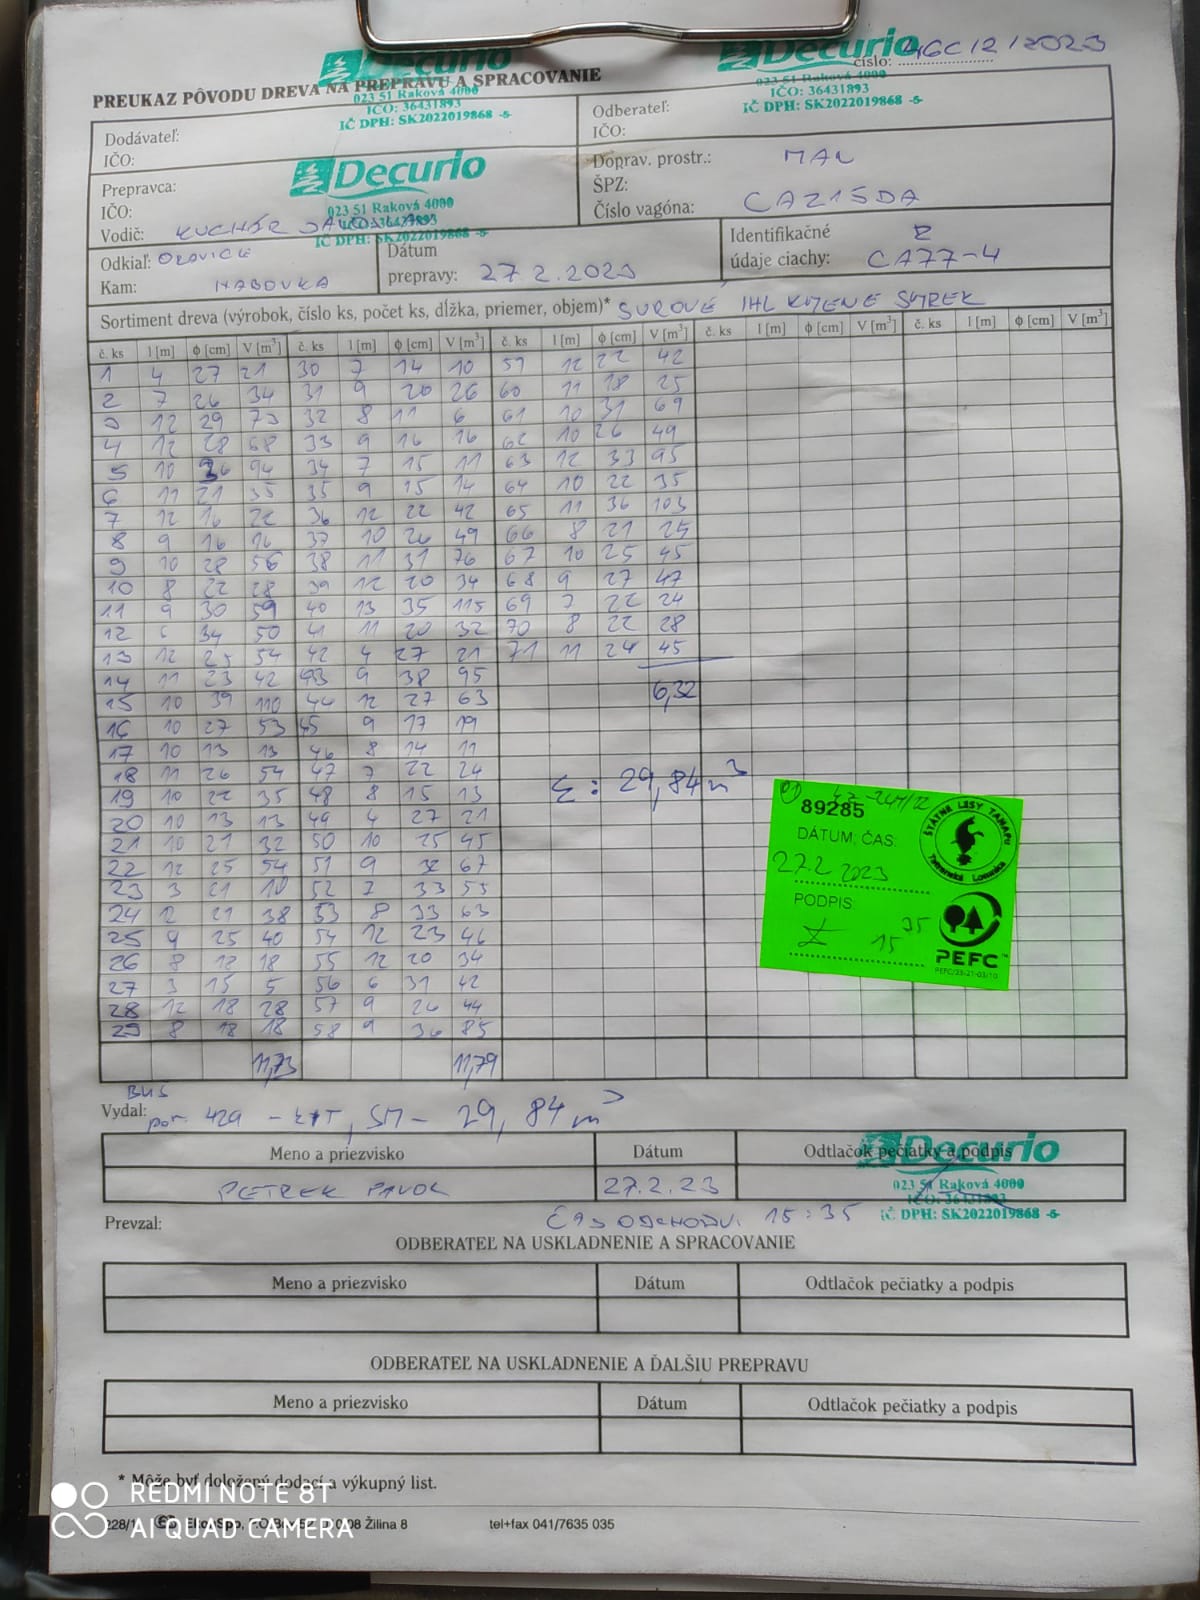 Decurio
023 51 Raková 4000
IČO: 36431893
IČ DPH: SK2022019868 -5-
Decurio
číslo: 4GC/2/2023
023 51 Raková 4000
IČO: 36431893
IČ DPH: SK2022019868 -5-
PREUKAZ PÔVODU DREVA NA PREPRAVU A SPRACOVANIE
Dodávateľ:
IČO:
Odberateľ:
IČO:
Prepravca:
IČO:
Vodič: KUCHÁR
Decurio
023 51 Raková 4000
IČ DPH: SK2022019868 -5-
Doprav. prostr.: MAN
ŠPZ:
Číslo vagóna: CA215DA
Odkiaľ: ORAVICE
Kam: HABOVKA
Dátum
prepravy: 27.2.2023
Identifikačné
údaje ciachy: CA77-4
Sortiment dreva (výrobok, číslo ks, počet ks, dĺžka, priemer, objem)* SUROVÉ IHL KMENE SMREK
č. ks l [m] ϕ [cm] V [m³] č. ks l [m] ϕ [cm] V [m³] č. ks l [m] ϕ [cm] V [m³] č. ks l [m] ϕ [cm] V [m³] č. ks l [m] ϕ [cm] V [m³]
1 4 27 21 30 7 14 10 59 12 22 42
2 7 26 34 31 9 20 26 60 11 18 25
3 12 29 73 32 8 11 6 61 10 31 69
4 12 28 68 33 9 16 16 62 10 26 49
5 10 36 94 34 7 15 11 63 12 33 95
6 11 21 35 35 9 15 14 64 10 22 35
7 12 16 22 36 12 22 42 65 11 36 103
8 9 16 16 37 10 26 49 66 8 21 25
9 10 28 56 38 11 31 76 67 10 25 45
10 8 22 28 39 12 20 34 68 9 27 47
11 9 30 59 40 13 35 115 69 7 22 24
12 6 34 50 41 11 20 32 70 8 22 28
13 12 25 54 42 4 27 21 71 11 24 45
14 11 23 42 43 9 38 95
15 10 39 110 44 12 27 63 6,32
16 10 27 53 45 9 17 19
17 10 13 13 46 8 14 11
18 11 26 54 47 7 22 24
19 10 22 35 48 8 15 13
Σ: 29,84 m³
20 10 13 13 49 4 27 21
21 10 21 32 50 10 25 45
22 12 25 54 51 9 32 67
23 3 21 10 52 7 33 55
24 12 21 38 53 8 33 63
25 9 25 40 54 12 23 46
26 8 18 18 55 12 20 34
27 3 15 5 56 6 31 42
28 12 18 28 57 9 26 44
29 8 18 18 58 9 36 85
11,73 11,79
89285
DÁTUM, ČAS:
27.2 2023
PODPIS:
15 35
ŠTÁTNE LESY TANAPU
Tatranská Lomnica
PEFC™
PEFC/23-21-03/10
Vydal: por. 429 - , SM - 29,84 m³
Meno a priezvisko Dátum Odtlačok pečiatky a podpis
PETREK PAVOL 27.2.23
Decurio
023 51 Raková 4000
IČO: 36431893
IČ DPH: SK2022019868 -5-
Prevzal:
ČAS ODCHODU: 15:35
ODBERATEĽ NA USKLADNENIE A SPRACOVANIE
Meno a priezvisko Dátum Odtlačok pečiatky a podpis
ODBERATEĽ NA USKLADNENIE A ĎALŠIU PREPRAVU
Meno a priezvisko Dátum Odtlačok pečiatky a podpis
* Môže byť doložený dodací a výkupný list.
REDMI NOTE 8T
AI QUAD CAMERA
Žilina 8 tel+fax 041/7635 035